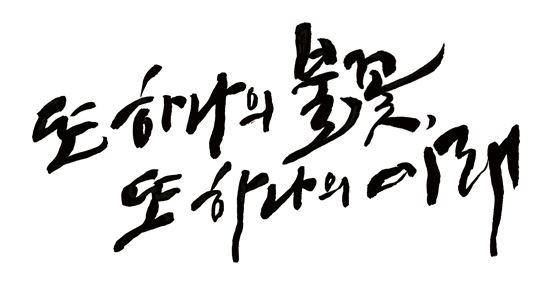 또 하나의 불꽃,
또 하나의 이래